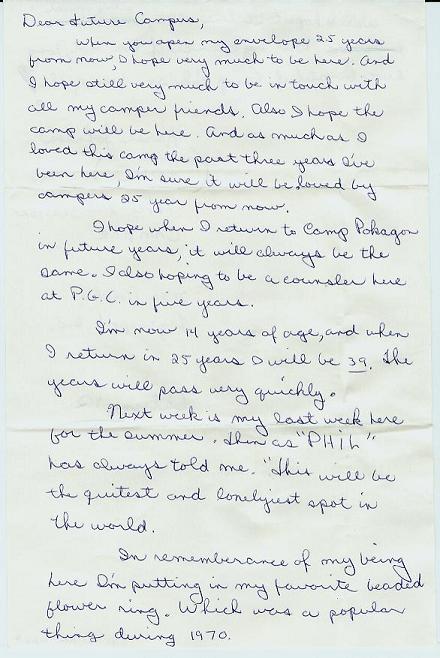 Dear Future Campers,
When you open my envelope 25 years
from now, I hope very much to be here. And
I hope still very much to be in touch with
all my camper friends. Also I hope the
camp will be here. And as much as I
loved this camp the past three years I've
been here, I'm sure it will be loved by
campers 25 year from now.
I hope when I return to Camp Pokagon
in future years, it will always be the
same. I also hoping to be a counsler here
at P.G.C. in five years.
I'm now 14 years of age, and when
I return in 25 years I will be 39. The
years will pass very quickly.
Next week is my last week here
for the summer. Then as "PHIL"
has always told me. "This will be
the quitest and lonelyiest spot in
the world.
In rememberance of my being
here I'm putting in my favorite beaded
flower ring. Which was a popular
thing during 1970.